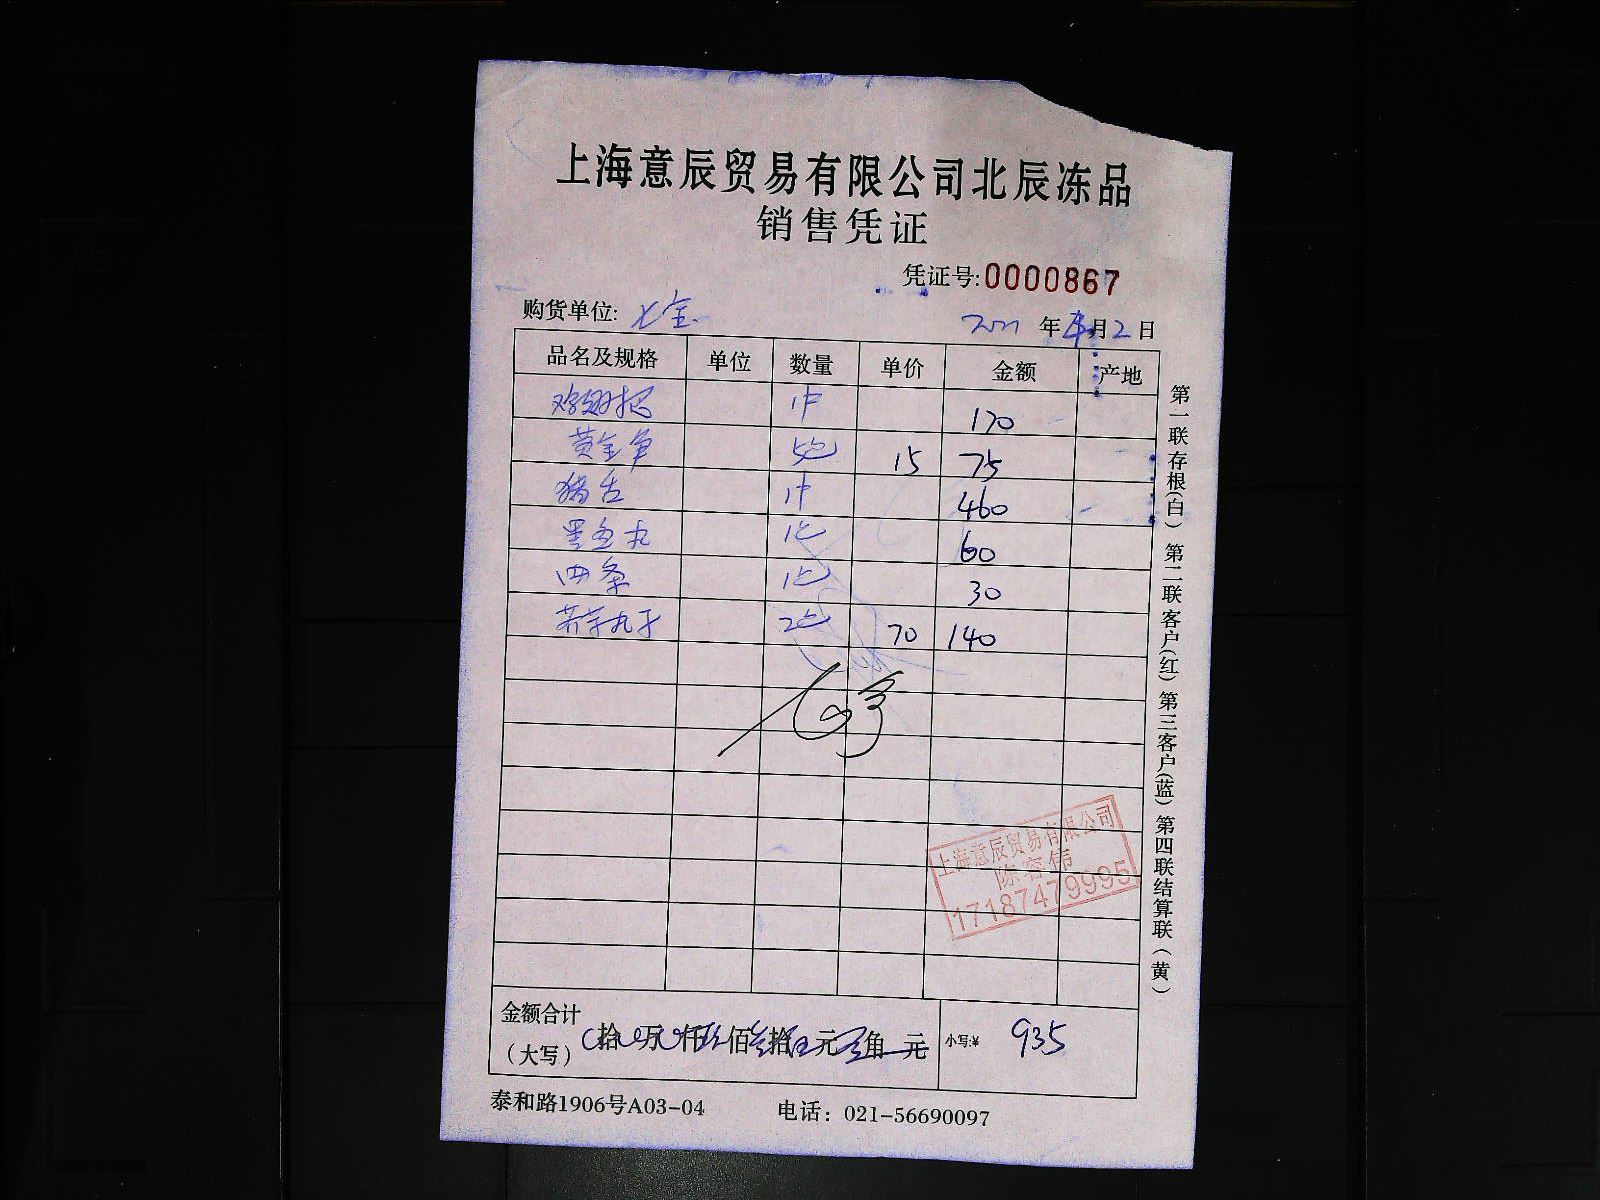 上海意辰贸易有限公司北辰冻品
销售凭证
凭证号:0000867
购货单位: 七宝
2021 年 月 2 日
品名及规格 单位 数量 单价 金额 产地
鸡翅根 1件 170
黄金 5包 15 75
猪舌 1件 460
墨鱼丸 1包 60
四条 1包 30
荠菜丸子 2包 70 140
上海意辰贸易有限公司
陈容伟
17187479995
金额合计
(大写) 拾 万 仟 玖佰 叁拾 伍元 角 元 小写:¥ 935
泰和路1906号A03-04 电话: 021-56690097
第一联存根(白) 第二联客户(红) 第三客户(蓝) 第四联结算联(黄)